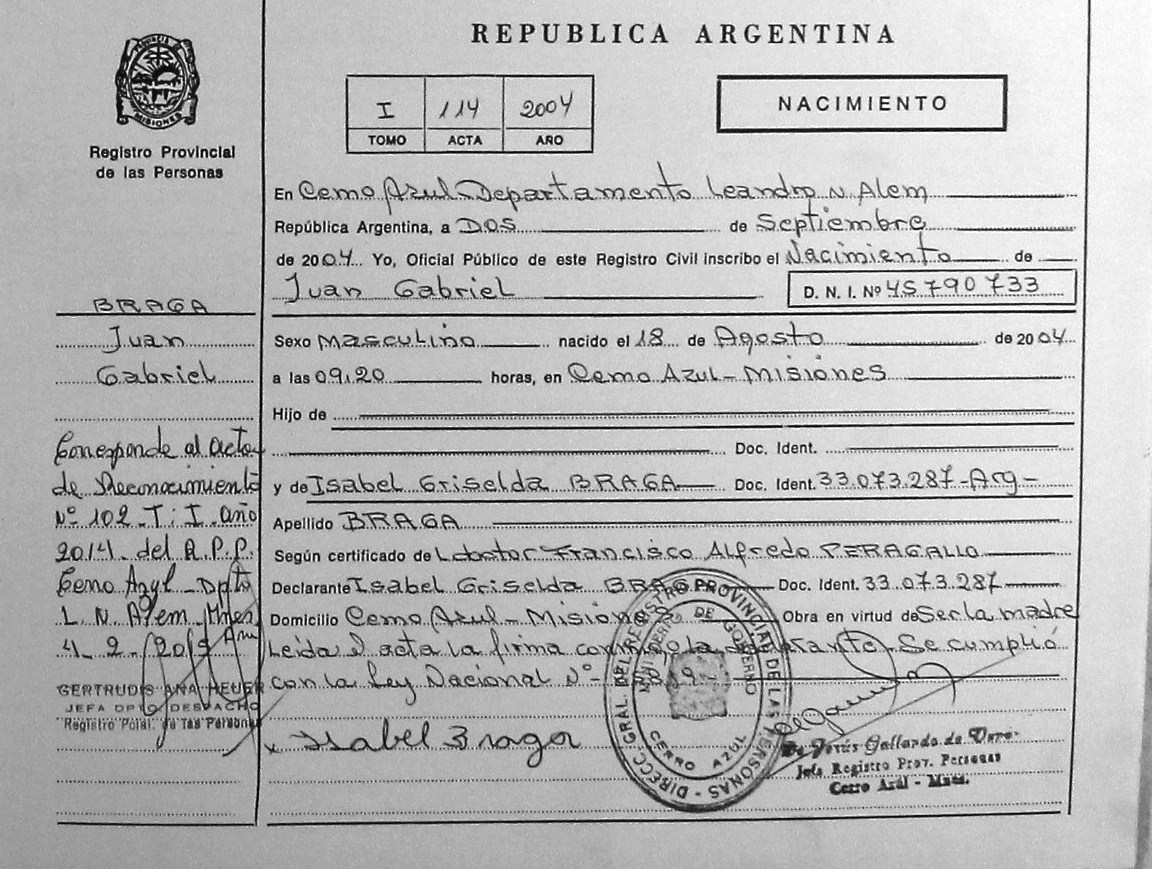 REPUBLICA ARGENTINA
PROVINCIA DE MISIONES
Registro Provincial
de las Personas
I 114 2004
TOMO ACTA AÑO
NACIMIENTO
En Cerro Azul Departamento Leandro N. Alem
República Argentina, a DOS de Septiembre
de 2004 Yo, Oficial Público de este Registro Civil inscribo el Nacimiento de
Juan Gabriel D. N. I. Nº 45790733
Sexo Masculino nacido el 18 de Agosto de 2004
a las 09,20 horas, en Cerro Azul - Misiones
Hijo de
Doc. Ident.
y de Isabel Griselda BRAGA Doc. Ident. 33.073.287-Arg-
Apellido BRAGA
Según certificado de Doctor Francisco Alfredo PERAGALLO
Declarante Isabel Griselda BRAGA Doc. Ident. 33.073.287
Domicilio Cerro Azul - Misiones Obra en virtud de Ser la madre
Leida el acta la firma conmigo la declarante. Se cumplió
con la Ley Nacional Nº
x Isabel Braga
BRAGA
Juan
Gabriel
Corresponde al acta
de Reconocimiento
Nº 102 - T: I. año
2014. del R.P.P.
Cerro Azul - Dpto
L. N. Alem, Mnes
GERTRUDIS ANA HEUER
JEFA DPTO DESPACHO
Registro Pcial. de las Personas
DIRECC. GRAL. DEL REGISTRO PROVINCIAL DE LAS PERSONAS
MINISTERIO DE GOBIERNO
CERRO AZUL
Jefa Registro Prov. Personas
Cerro Azul - Mnes.